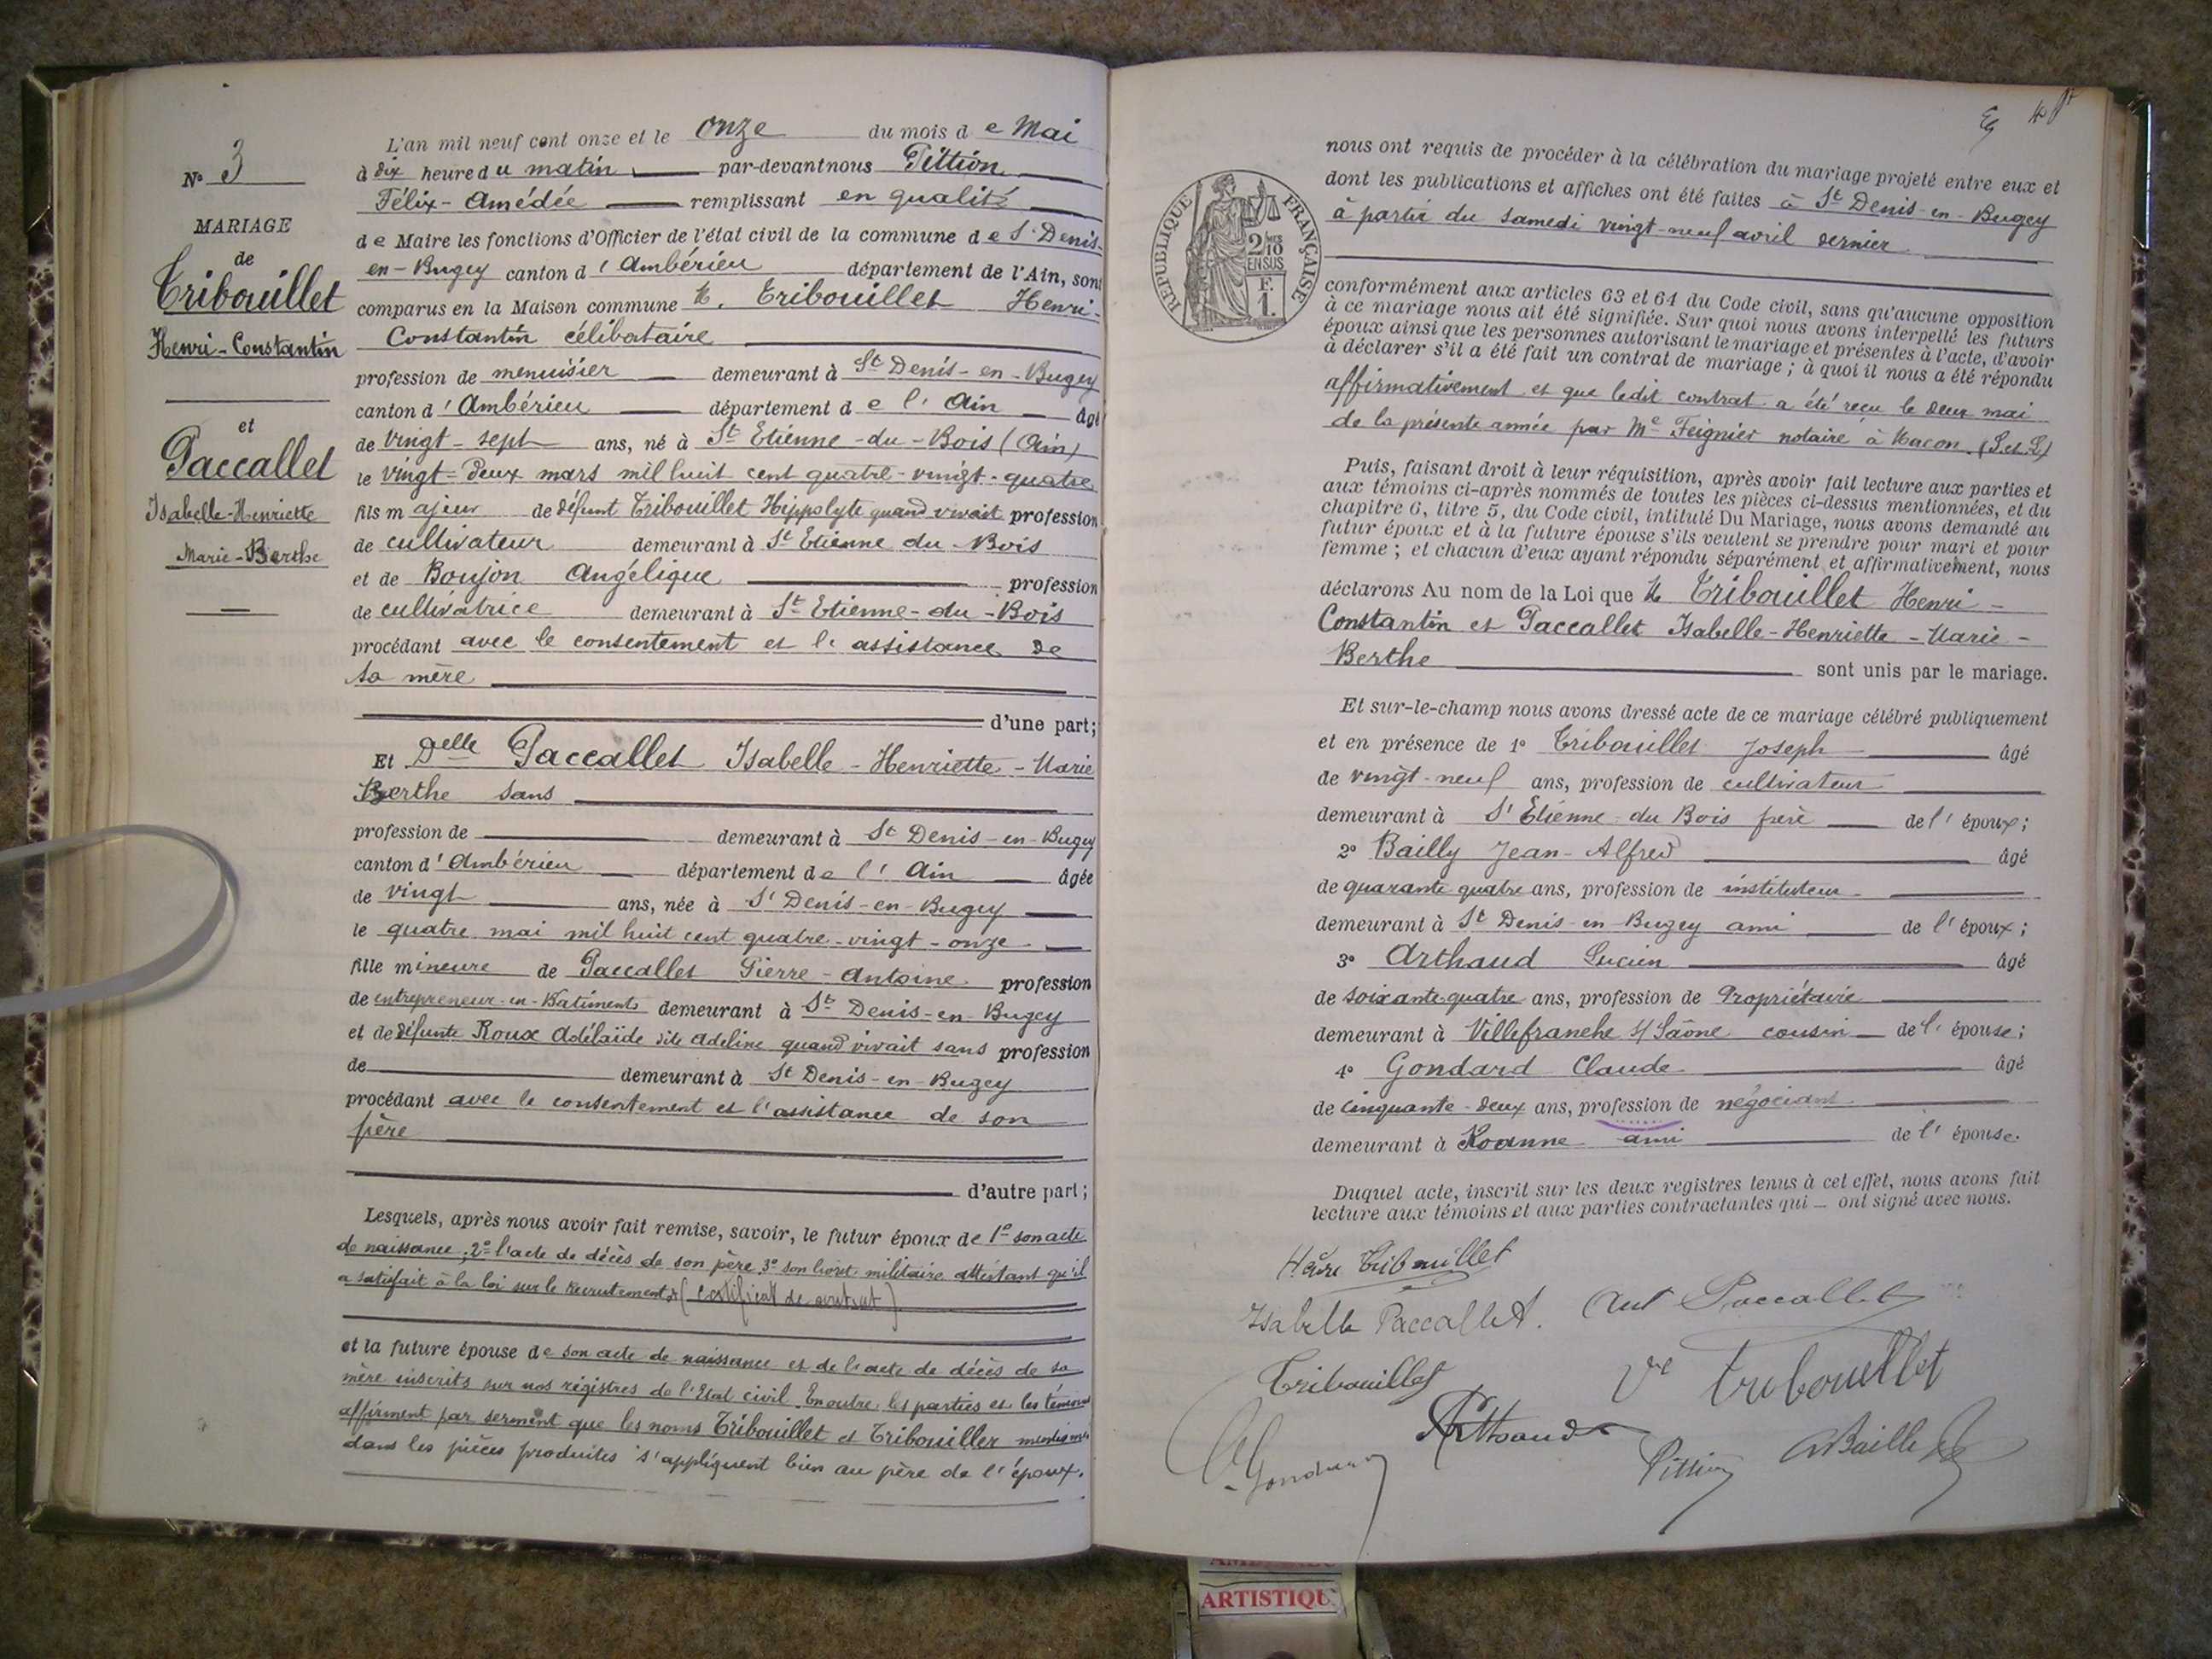 N° 3
MARIAGE
de
Tribouillet
Henri-Constantin
et
Paccallet
Isabelle-Henriette
Marie-Berthe
L'an mil neuf cent onze et le onze du mois de Mai
à dix heure du matin par-devant nous Pittion
Félix-Amédée remplissant en qualité
de Maire les fonctions d'Officier de l'état civil de la commune de St Denis-
en-Bugey canton d'Ambérieu département de l'Ain, sont
comparus en la Maison commune M. Tribouillet Henri-
Constantin célibataire
profession de menuisier demeurant à St Denis-en-Bugey
canton d'Ambérieu département de l'Ain âgé
de vingt-sept ans, né à St Etienne-du-Bois (Ain)
le vingt-deux mars mil huit cent quatre-vingt-quatre
fils majeur de défunt Tribouillet Hippolyte quand vivait profession
de cultivateur demeurant à St Etienne du-Bois
et de Boujon Angélique profession
de cultivatrice demeurant à St Etienne-du-Bois
procédant avec le consentement et l'assistance de
sa mère
d'une part;
Et Delle Paccallet Isabelle-Henriette-Marie
Berthe sans
profession de demeurant à St Denis-en-Bugey
canton d'Ambérieu département de l'Ain âgée
de vingt ans, née à St Denis-en-Bugey
le quatre mai mil huit cent quatre-vingt-onze
fille mineure de Paccallet Pierre-Antoine profession
de entrepreneur-en-Batiments demeurant à St Denis-en-Bugey
et de défunte Roux Adélaïde dite Adeline quand vivait sans profession
de demeurant à St Denis-en-Bugey
procédant avec le consentement et l'assistance de son
père
d'autre part;
Lesquels, après nous avoir fait remise, savoir, le futur époux de 1° son acte
de naissance; 2° l'acte de décès de son père 3° son livret militaire attestant qu'il
a satisfait à la loi sur le recrutement (certificat de contrat)
et la future épouse de son acte de naissance et de l'acte de décès de sa
mère inscrits sur nos régistres de l'Etat civil. En outre, les parties et les témoins
affirment par serment que les noms Tribouillet et Tribouiller mentionnés
dans les pièces produites s'appliquent bien au père de l'époux.
RÉPUBLIQUE FRANÇAISE
2/10 EN SUS
F.
1.
nous ont requis de procéder à la célébration du mariage projeté entre eux et
dont les publications et affiches ont été faites à St Denis-en-Bugey
à partir du samedi vingt-neuf avril dernier
conformément aux articles 63 et 64 du Code civil, sans qu'aucune opposition
à ce mariage nous ait été signifiée. Sur quoi nous avons interpellé les futurs
époux ainsi que les personnes autorisant le mariage et présentes à l'acte, d'avoir
à déclarer s'il a été fait un contrat de mariage; à quoi il nous a été répondu
affirmativement et que ledit contrat a été reçu le deux mai
de la présente année par Me Feignier notaire à Macon. (S. et L.)
Puis, faisant droit à leur réquisition, après avoir fait lecture aux parties et
aux témoins ci-après nommés de toutes les pièces ci-dessus mentionnées, et du
chapitre 6, titre 5, du Code civil, intitulé Du Mariage, nous avons demandé au
futur époux et à la future épouse s'ils veulent se prendre pour mari et pour
femme; et chacun d'eux ayant répondu séparément et affirmativement, nous
déclarons Au nom de la Loi que M Tribouillet Henri-
Constantin et Paccallet Isabelle-Henriette-Marie-
Berthe sont unis par le mariage.
Et sur-le-champ nous avons dressé acte de ce mariage célébré publiquement
et en présence de 1° Tribouillet Joseph âgé
de vingt-neuf ans, profession de cultivateur
demeurant à St Etienne-du Bois frère de l'époux;
2° Bailly Jean-Alfred âgé
de quarante quatre ans, profession de instituteur
demeurant à St Denis-en-Bugey ami de l'époux;
3° Arthaud Lucien âgé
de soixante-quatre ans, profession de Propriétaire
demeurant à Villefranche s/ Saône cousin de l'épouse;
4° Gondard Claude âgé
de cinquante-deux ans, profession de négociant
demeurant à Roanne ami de l'épouse.
Duquel acte, inscrit sur les deux registres tenus à cet effet, nous avons fait
lecture aux témoins et aux parties contractantes qui ont signé avec nous.
Henri Tribouillet
Isabelle Paccallet. Ant Paccallet
Tribouillet Vve Tribouillet
Gondard Arthaud Pittion ABailly
ARTISTIQU